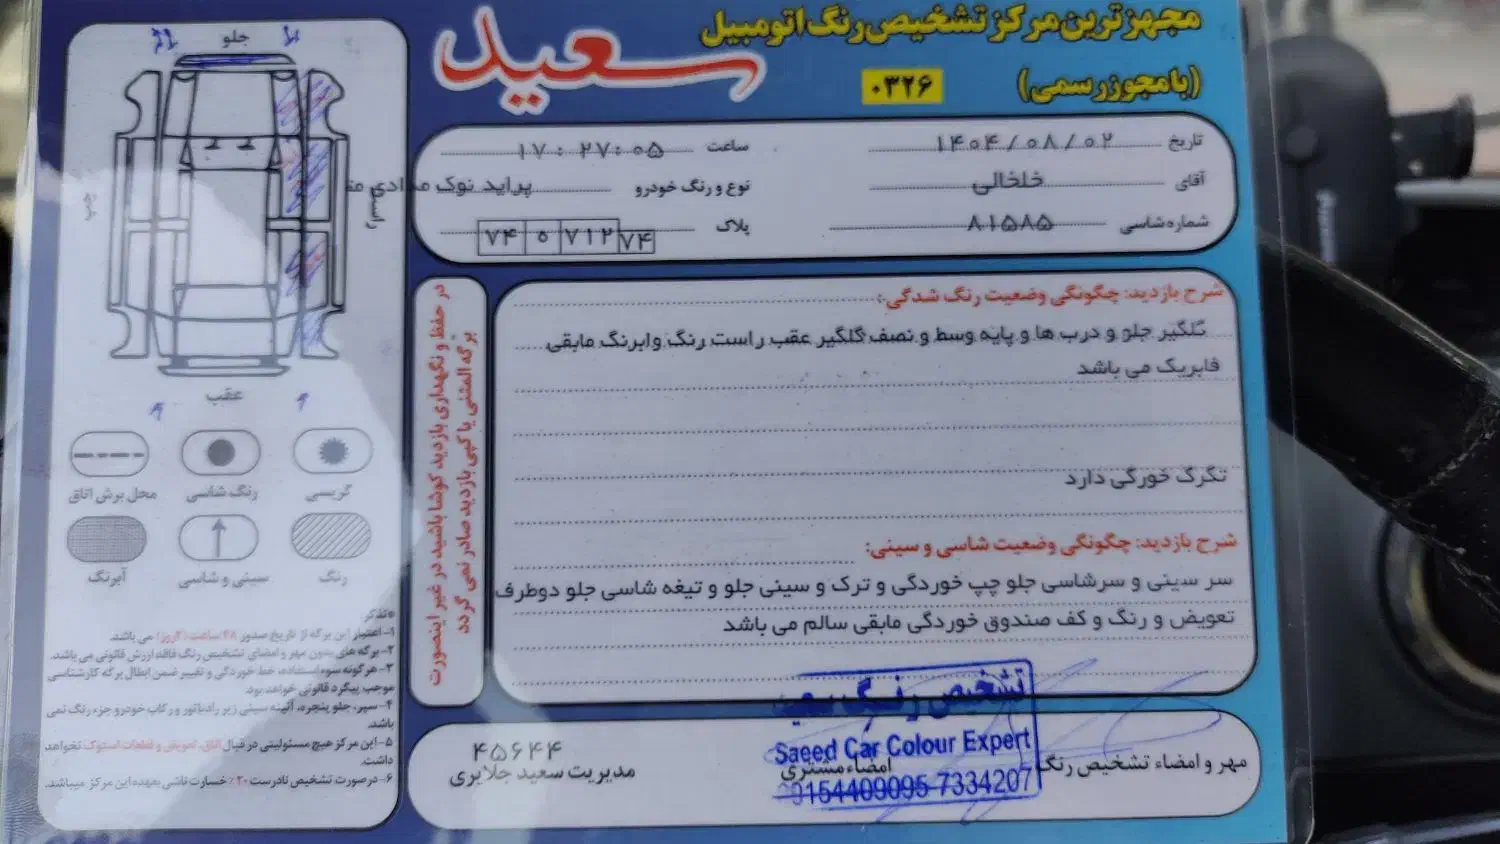 مجهزترین مرکز تشخیص رنگ اتومبیل
سعید
(با مجوز رسمی)
۰۳۲۶
تاریخ ۱۴۰۴/۰۸/۰۲
ساعت ۱۷:۲۷:۰۵
آقای خلخالی
نوع و رنگ خودرو پراید نوک مدادی مت
شماره شاسی ۸۱۵۸۵
پلاک ۷۴ ۵ ۷۱۲ ۷۴
شرح بازدید: چگونگی وضعیت رنگ شدگی:
گلگیر جلو و درب ها و پایه وسط و نصف گلگیر عقب راست رنگ وابرنگ مابقی
فابریک می باشد
تگرک خورگی دارد
شرح بازدید: چگونگی وضعیت شاسی و سینی:
سر سینی و سرشاسی جلو چپ خوردگی و ترک و سینی جلو و تیغه شاسی جلو دوطرف
تعویض و رنگ و کف صندوق خوردگی مابقی سالم می باشد
مهر و امضاء تشخیص رنگ
امضاء مشتری
تشخیص رنگ سعید
Saeed Car Colour Expert
09154409095-7334207
۴۵۶۴۴
مدیریت سعید جلایری
در حفظ و نگهداری بازدید کوشا باشید در غیر اینصورت
برگه المثنی یا کپی بازدید صادر نمی گردد
جلو
راست
چپ
عقب
گریسی
رنگ شاسی
محل برش اتاق
رنگ
سینی و شاسی
آبرنگ
*تذکر
۱- اعتبار این برگه از تاریخ صدور ۴۸ ساعت (۲روز) می باشد.
۲- برگه های بدون مهر و امضای تشخیص رنگ فاقد ارزش قانونی می باشد.
۳- هرگونه سوء استفاده، خط خوردگی و تغییر ضمن ابطال برگه کارشناسی
موجب پیگرد قانونی خواهد بود.
۴- سپر، جلو پنجره، آئینه سینی زیر رادیاتور و رکاب خودرو جزء رنگ نمی
باشد.
۵- این مرکز هیچ مسئولیتی در قبال اتاق، تعویض و قطعات استوک نخواهد
داشت.
۶- در صورت تشخیص نادرست ۲۰٪ خسارت ناشی بعهده این مرکز میباشد.